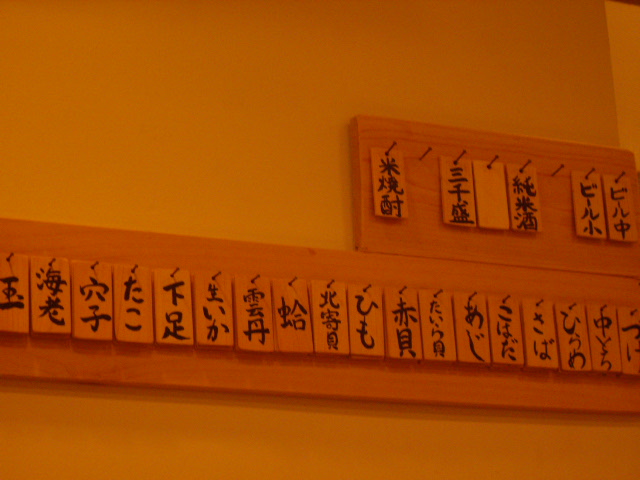 ビール中
ビール小
純米酒
三千盛
米焼酎
中とろ
ひらめ
さば
こはだ
めじ
たいら貝
赤貝
ひも
北寄貝
蛤
雲丹
生いか
下足
たこ
穴子
海老
玉